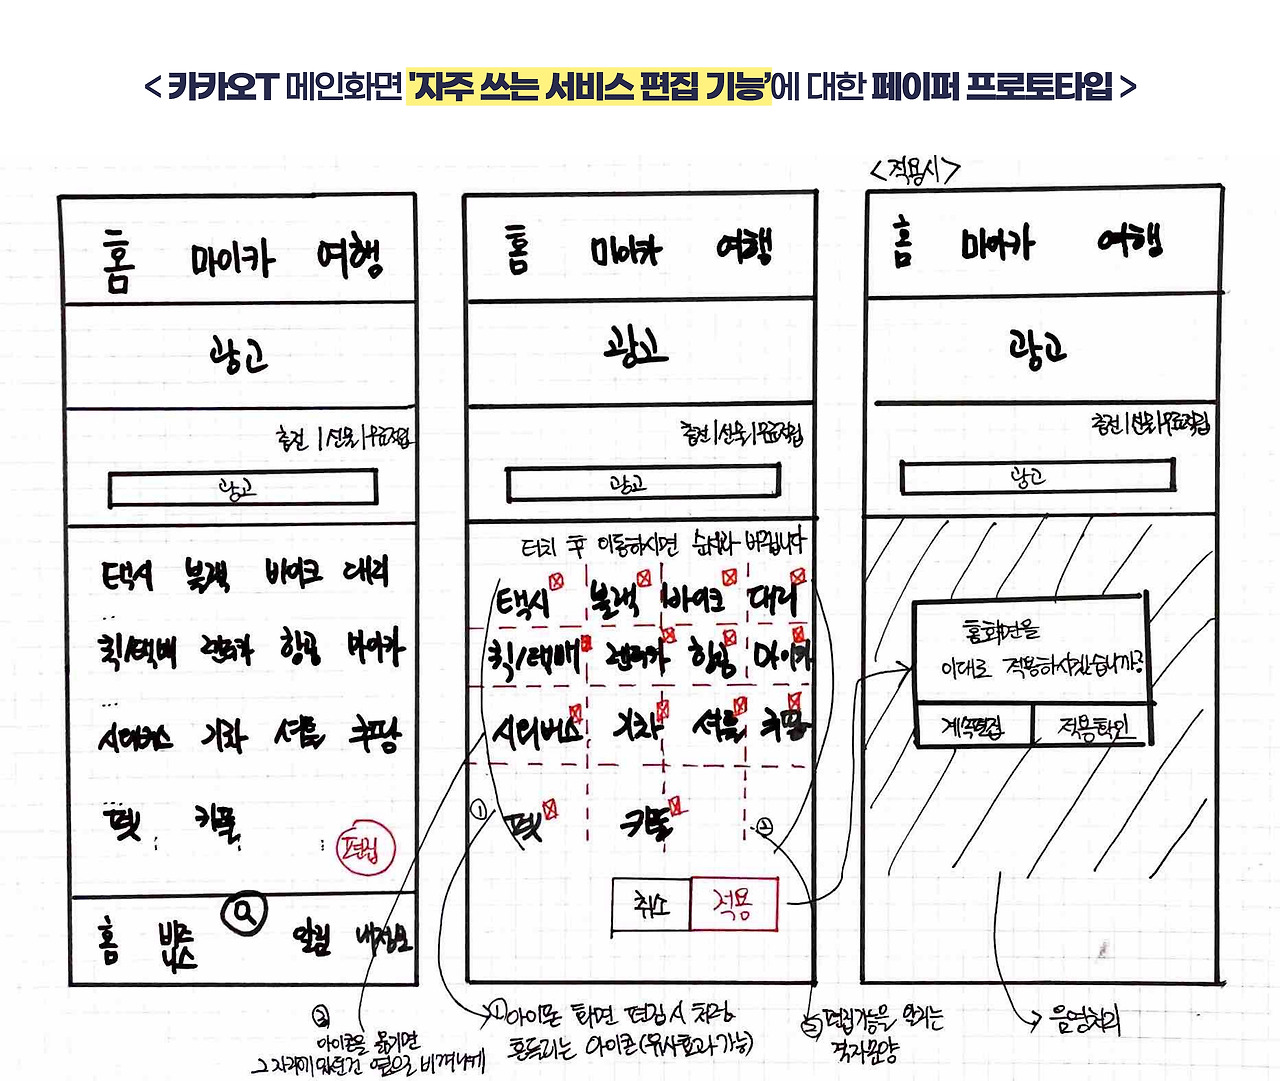 < 카카오T 메인화면 '자주 쓰는 서비스 편집 기능'에 대한 페이퍼 프로토타입 >
홈 마이카 여행
광고
충전 | 선물 | 무료적립
광고
택시 블랙 바이크 대리
퀵/택배 렌터카 항공 마이카
시외버스 기차 셔틀 쿠팡
펫 카풀
편집
홈 비즈니스 알림 내정보
②
아이콘을 옮기면
그 자리에 있던건 옆으로 비켜나게
홈 마이카 여행
광고
충전 | 선물 | 무료적립
광고
터치 후 이동하시면 순서가 바뀝니다
택시 블랙 바이크 대리
퀵/택배 렌터카 항공 마이카
시외버스 기차 셔틀 쿠팡
①
펫 카풀
취소 적용
① 아이폰 화면 편집시 처럼
흔들리는 아이콘(유사효과 가능)
<적용시>
홈 마이카 여행
광고
충전 | 선물 | 무료적립
광고
홈화면을
이대로 적용하시겠습니까?
계속편집 적용확인
편집가능을 알리는
격자문양
음영처리